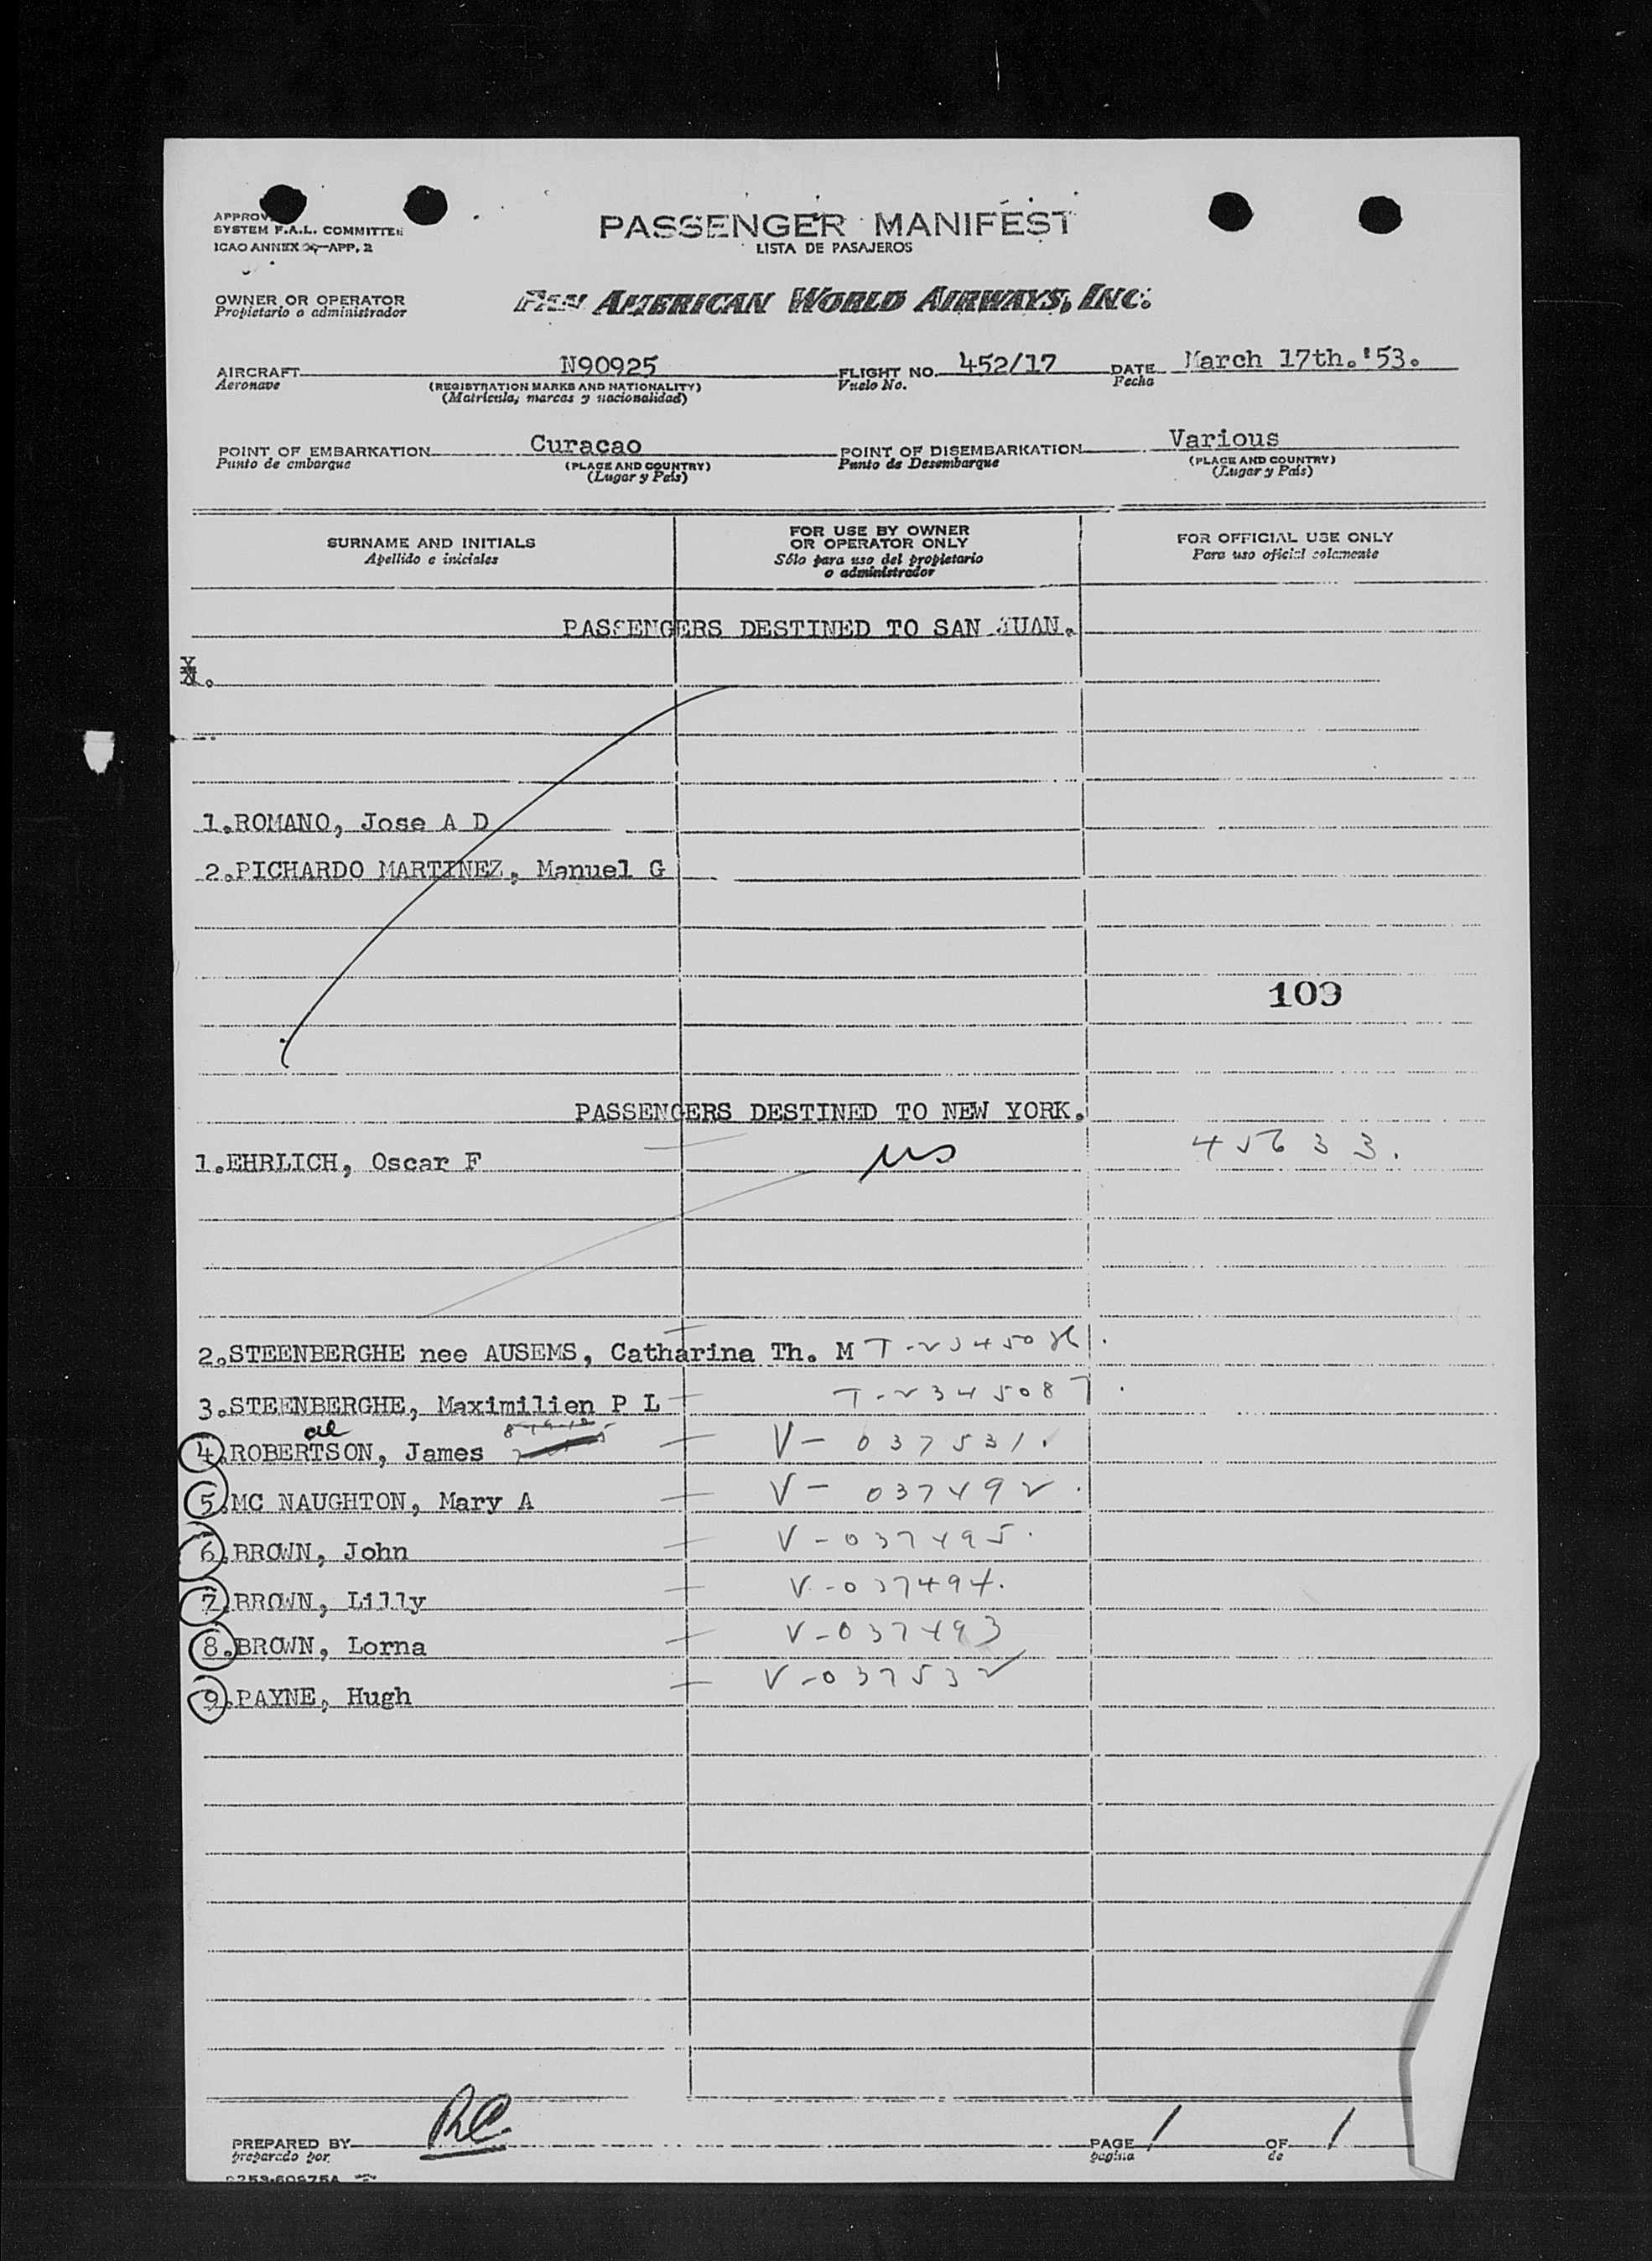 APPROV
SYSTEM F.A.L. COMMITTEE
ICAO ANNEX 9—APP. 2
PASSENGER MANIFEST
LISTA DE PASAJEROS
OWNER OR OPERATOR
Propietario o administrador
PAN AMERICAN WORLD AIRWAYS, INC.
AIRCRAFT N90925 FLIGHT NO. 452/17 DATE March 17th.'53.
Aeronave (REGISTRATION MARKS AND NATIONALITY) Vuelo No. Fecha
(Matrícula, marcas y nacionalidad)
POINT OF EMBARKATION Curacao POINT OF DISEMBARKATION Various
Punto de embarque (PLACE AND COUNTRY) Punto de Desembarque (PLACE AND COUNTRY)
(Lugar y País) (Lugar y País)
SURNAME AND INITIALS FOR USE BY OWNER OR OPERATOR ONLY FOR OFFICIAL USE ONLY
Apellido e iniciales Sólo para uso del propietario o administrador Para uso oficial solamente
PASSENGERS DESTINED TO SAN JUAN.
1.ROMANO, Jose A D
2.PICHARDO MARTINEZ, Manuel G
109
PASSENGERS DESTINED TO NEW YORK.
1.EHRLICH, Oscar F US 45633.
2.STEENBERGHE nee AUSEMS, Catharina Th. M T-2345086.
3.STEENBERGHE, Maximilien P L T-2345087.
4.ROBERTSON, James V-037531.
5.MC NAUGHTON, Mary A V-037492.
6.BROWN, John V-037495.
7.BROWN, Lilly V-037494.
8.BROWN, Lorna V-037493
9.PAYNE, Hugh V-037532
PREPARED BY RC PAGE 1 OF 1
preparado por página de